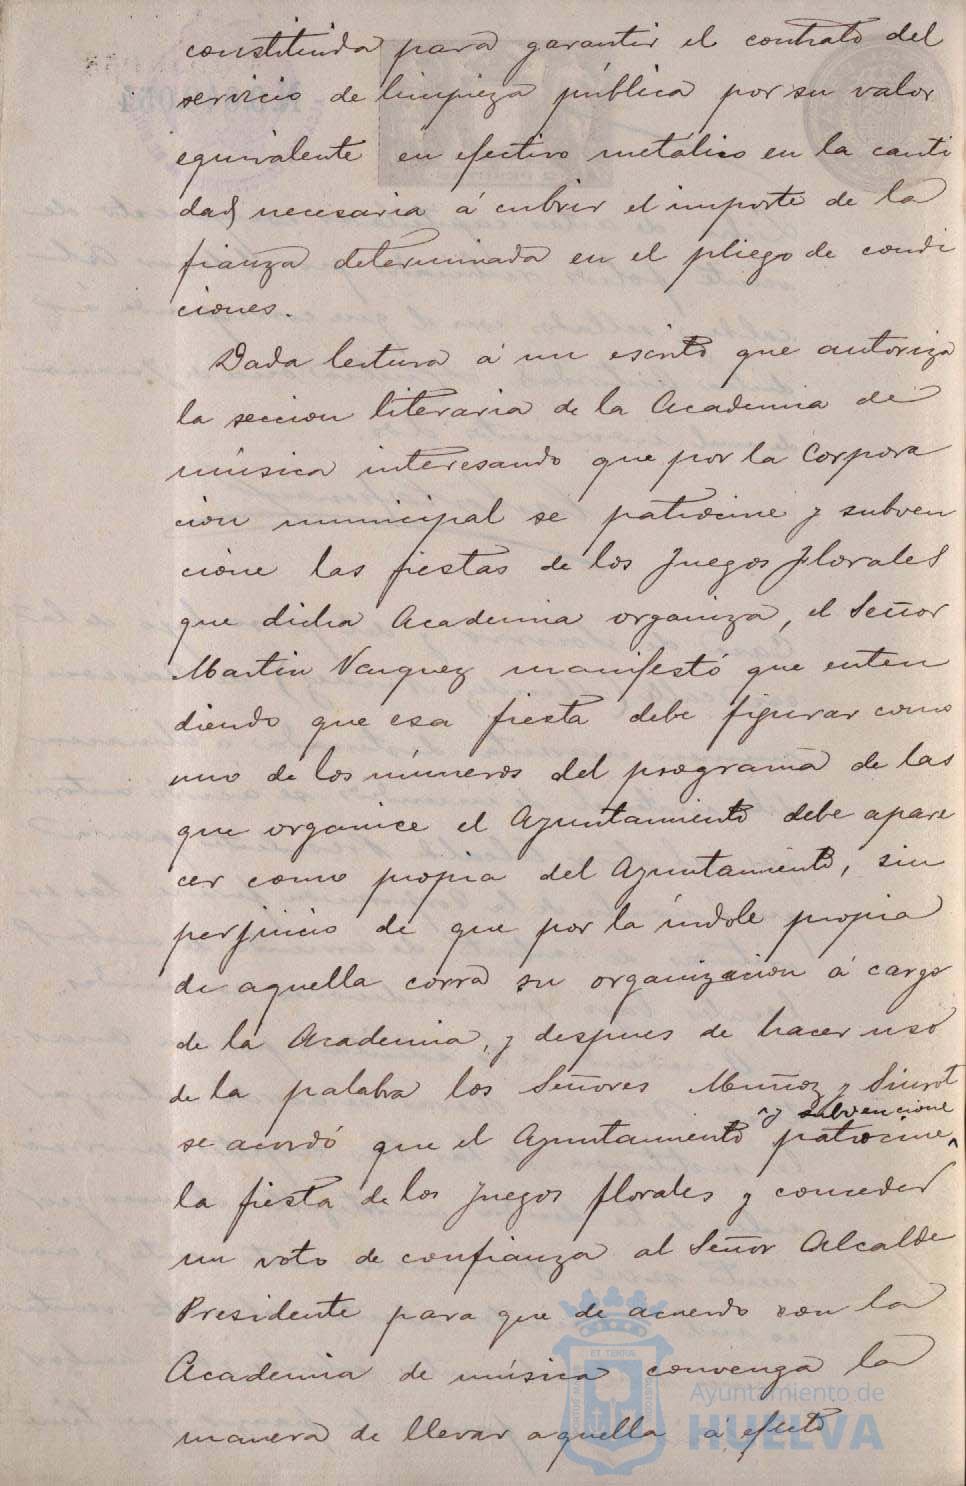 constituida para garantir el contrato del
servicio de limpieza pública por su valor
equivalente en efectivo metálico en la canti
dad necesaria á cubrir el importe de la
fianza determinada en el pliego de condi
ciones.
Dada lectura á un escrito que autoriza
la seccion literaria de la Academia de
música interesando que por la Corpora
cion municipal se patrocine y subven
cione las fiestas de los Juegos Florales
que dicha Academia organiza, el Señor
Martin Vazquez manifestó que enten
diendo que esa fiesta debe figurar como
uno de los números del programa de las
que organice el Ayuntamiento debe apare
cer como propia del Ayuntamiento, sin
perjuicio de que por la índole propia
de aquella corra su organizacion á cargo
de la Academia, y despues de hacer uso
de la palabra los Señores Muñoz y Siurot
y subvencione
se acordó que el Ayuntamiento patrocine
la fiesta de los Juegos florales y conceder
un voto de confianza al Señor Alcalde
Presidente para que de acuerdo con la
Academia de música convenga la
manera de llevar aquella á efecto
Ayuntamiento de
HUELVA